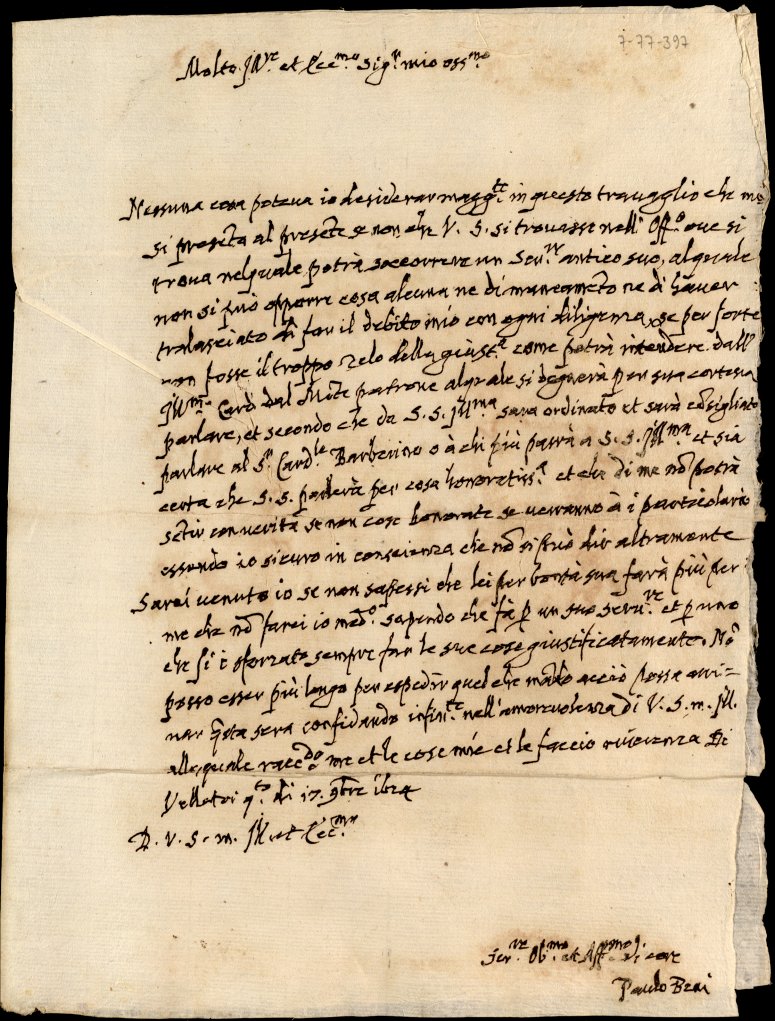 7-77-397
Molto Ill.re et Ecc.mo Sig.r mio oss.mo
Nessuna cosa poteva io desiderar magg.te in questo travaglio che mi
si preseta al presete se non che V. S. si trovasse nell' Off.o ove si
trova nel quale potrà soccorrere un Ser.re antico suo, al quale
non si può opporre cosa alcuna ne di mancameto ne di haver
tralasciato di far il debito mio con ogni diligenza, se per forte
non fosse il troppo zelo della giust.a come potrà intendere dall'
Ill.mo Card. dal Mōte patrone al quale si degnerà p sua cortesia
parlare, et secondo che da S. S. Ill.ma sarà ordinato et sarà cōsigliato
parlare al S.r Card.le Barberino o à chi più parrà a S. S. Ill.ma et sia
certa che S. S. parlerà per cosa honoratiss.a et che di me nō potrà
sētir con verità se non cose honorate se verranno à i particolari
essendo io sicuro in conscienza che nō si può dir altramente
Sarei venuto io se non sapessi che lei per bontà sua farà più per
me che nō farei io med.o sapendo che fà p un suo serv.re et p uno
che si è sforzato sempre far le sue cose giustificatamente. Nō
posso esser più longo per espedir quel che mādo acciò possa arri=
var q̄sta sera confidando infin.te nell'amorevolezza di V. S. m. Ill.
alla quale racc.do me et le cose mie et le faccio riverenza Di
Velletri q.to di 17. 9bre 1624
D. V. S. m. Ill. et Ecc.ma
Ser.re Ob.mo et Aff.mo di core
Paulo Beni